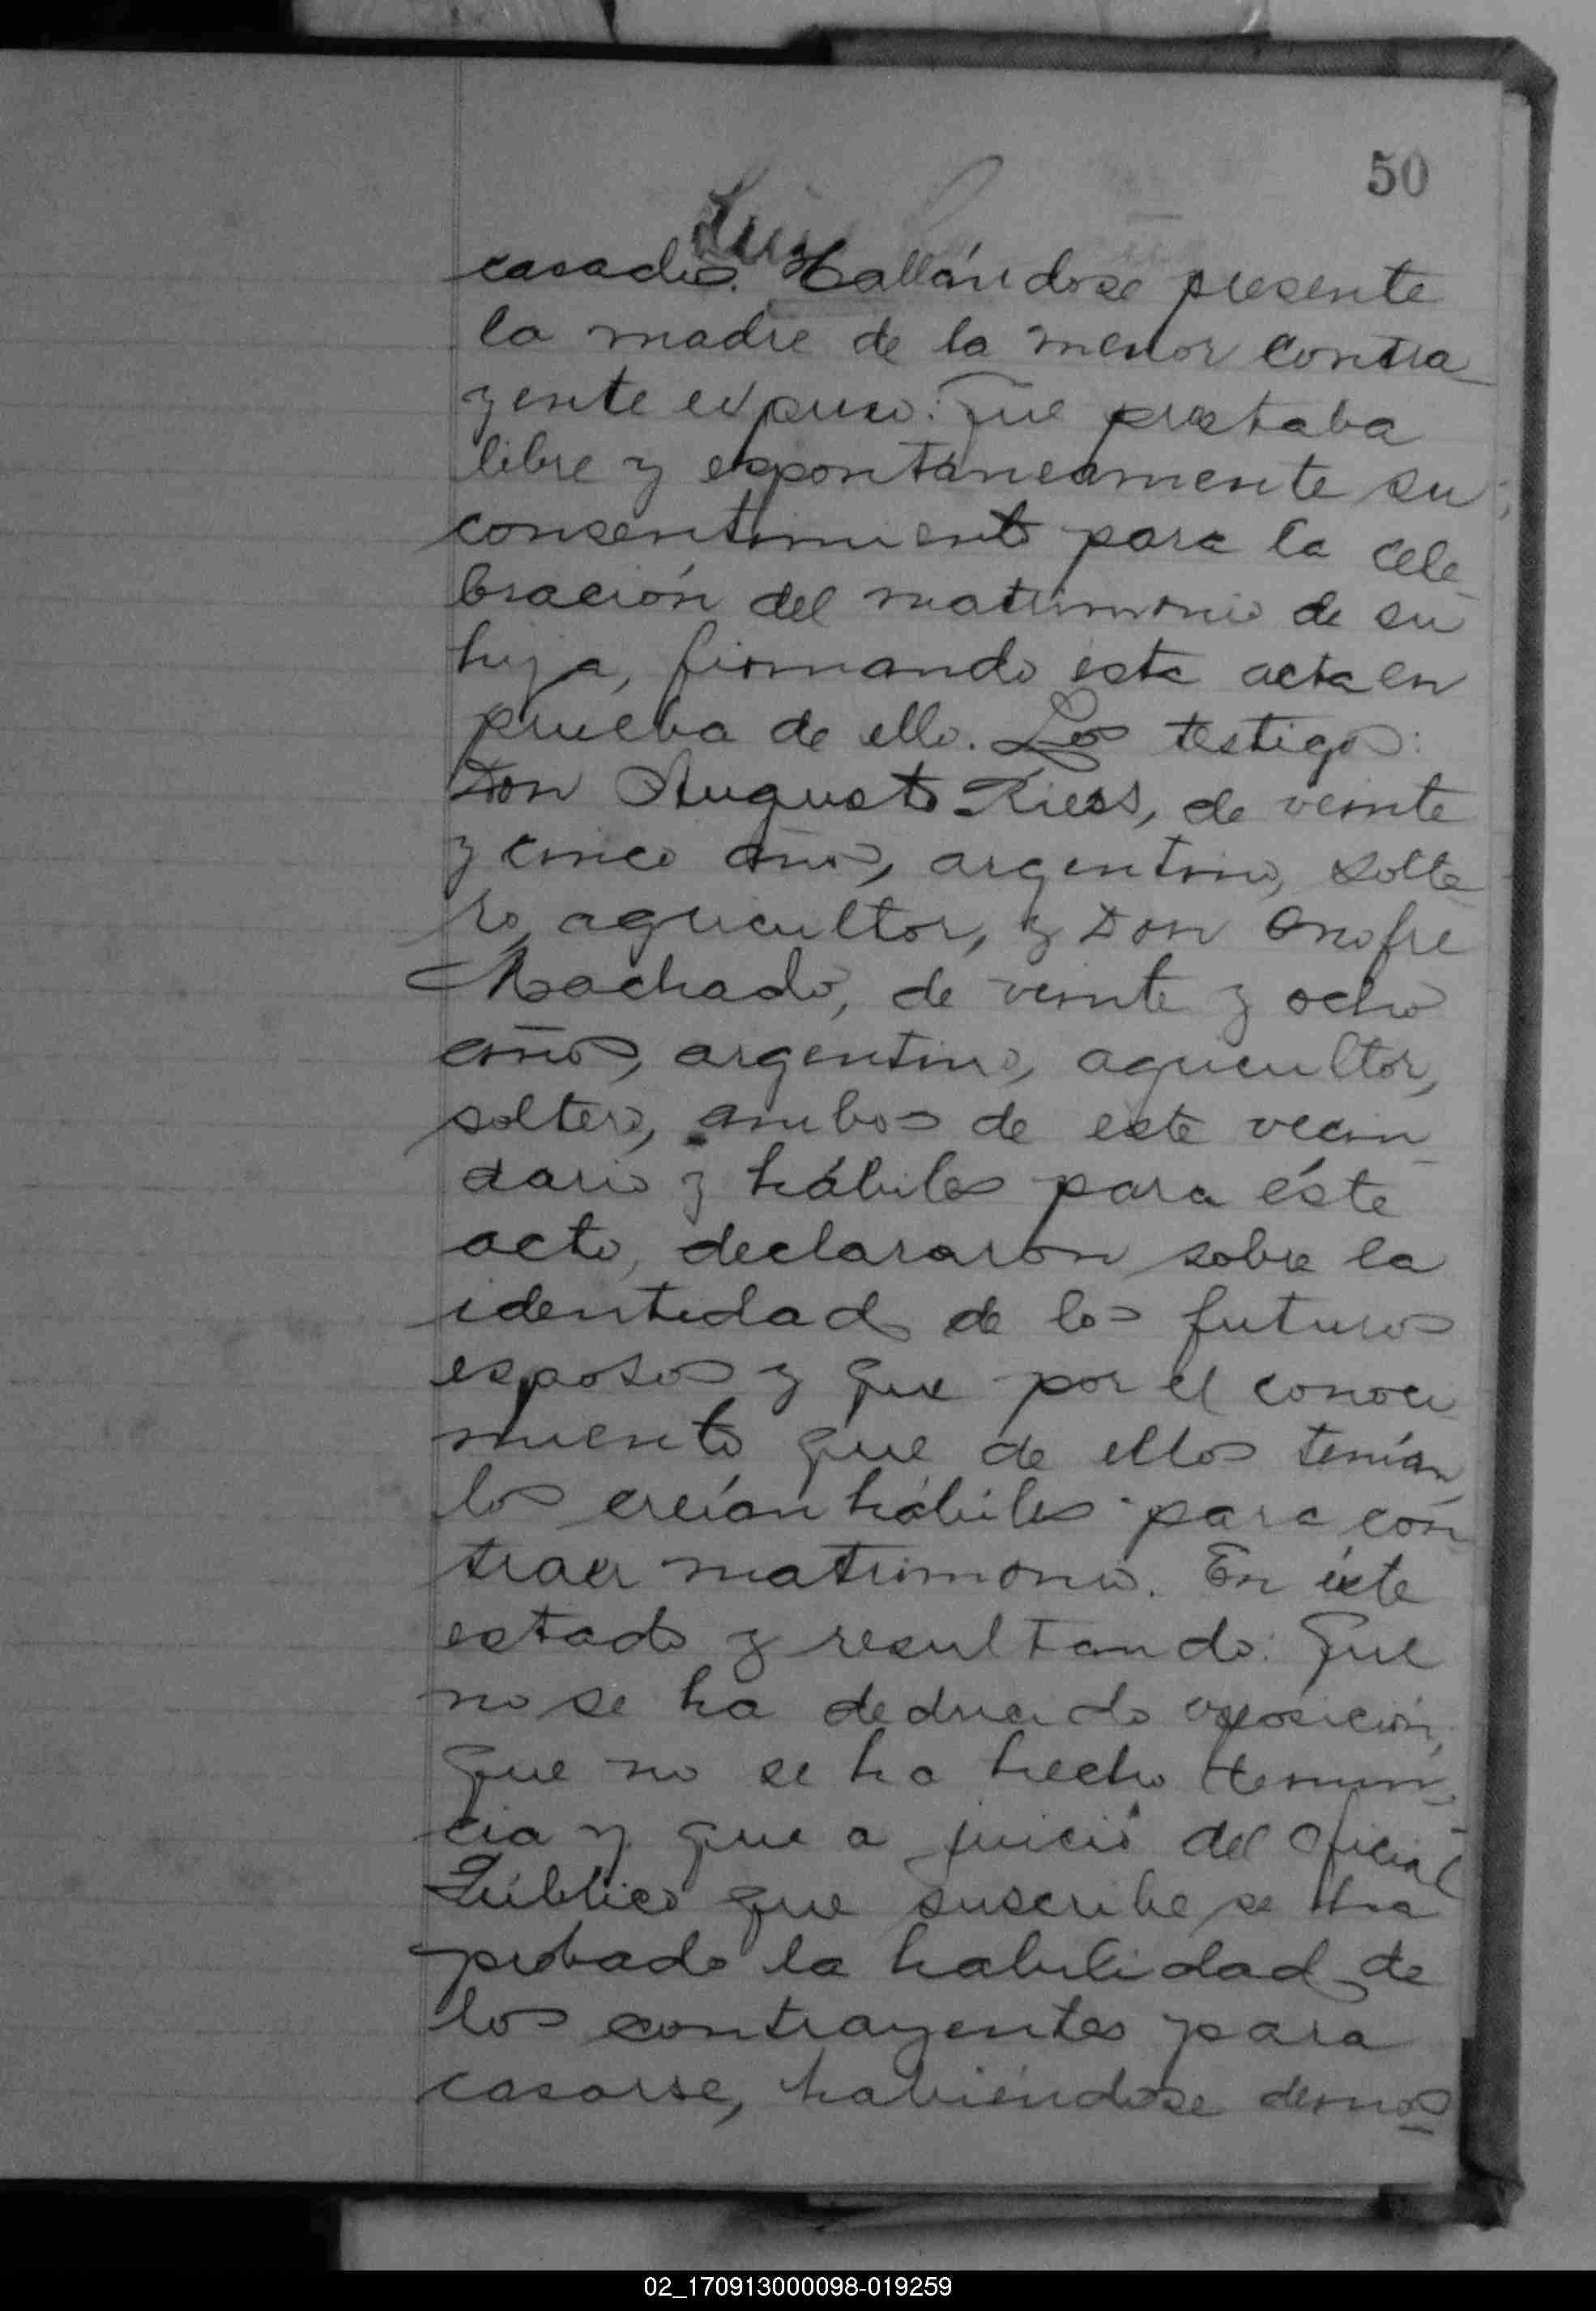 50
Luis
casados. Hallándose presente
la madre de la menor contra
yente expuso: que prestaba
libre y espontáneamente su
consentimiento para la cele
bración del matrimonio de su
hija, firmando ésta acta en
prueba de ello. Los testigos:
Don Augusto Riess, de veinte
y cinco años, argentino, solte
ro, agricultor, y Don Onofre
Machado, de veinte y ocho
años, argentino, agricultor,
soltero, ambos de este vecin
dario y hábiles para éste
acto, declararon sobre la
identidad de los futuros
esposos y que por el conoci
miento que de ellos tenían
los creían hábiles para con
traer matrimonio. En éste
estado y resultando: que
no se ha deducido oposición,
que no se ha hecho denun
cia y que a juicio del Oficial
Público que suscribe se ha
probado la habilidad de
los contrayentes para
casarse, habiéndose demos
02_170913000098-019259